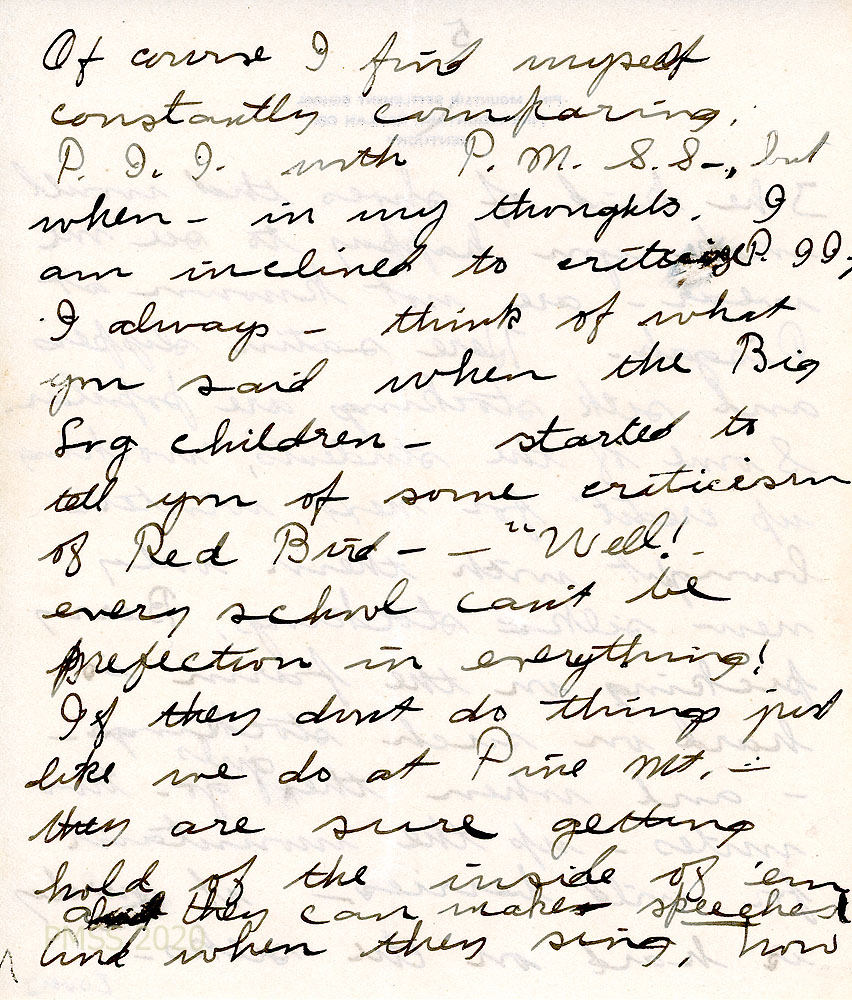 Of course I find myself
constantly comparing.
P. I. I. with P. M. S. S-., but
when - in my thoughts. I
am inclined to criticize P. I I,
I always - think of what
you said when the Big
Log children - started to
tell you of some criticism
of Red Bird - - "Well!
every school can't be
prefection in everything!
If they dont do things just
like we do at Pine Mt. -
they are sure getting
hold of the inside of 'em
they can make speeches
And when they sing, how
PMSS 2020